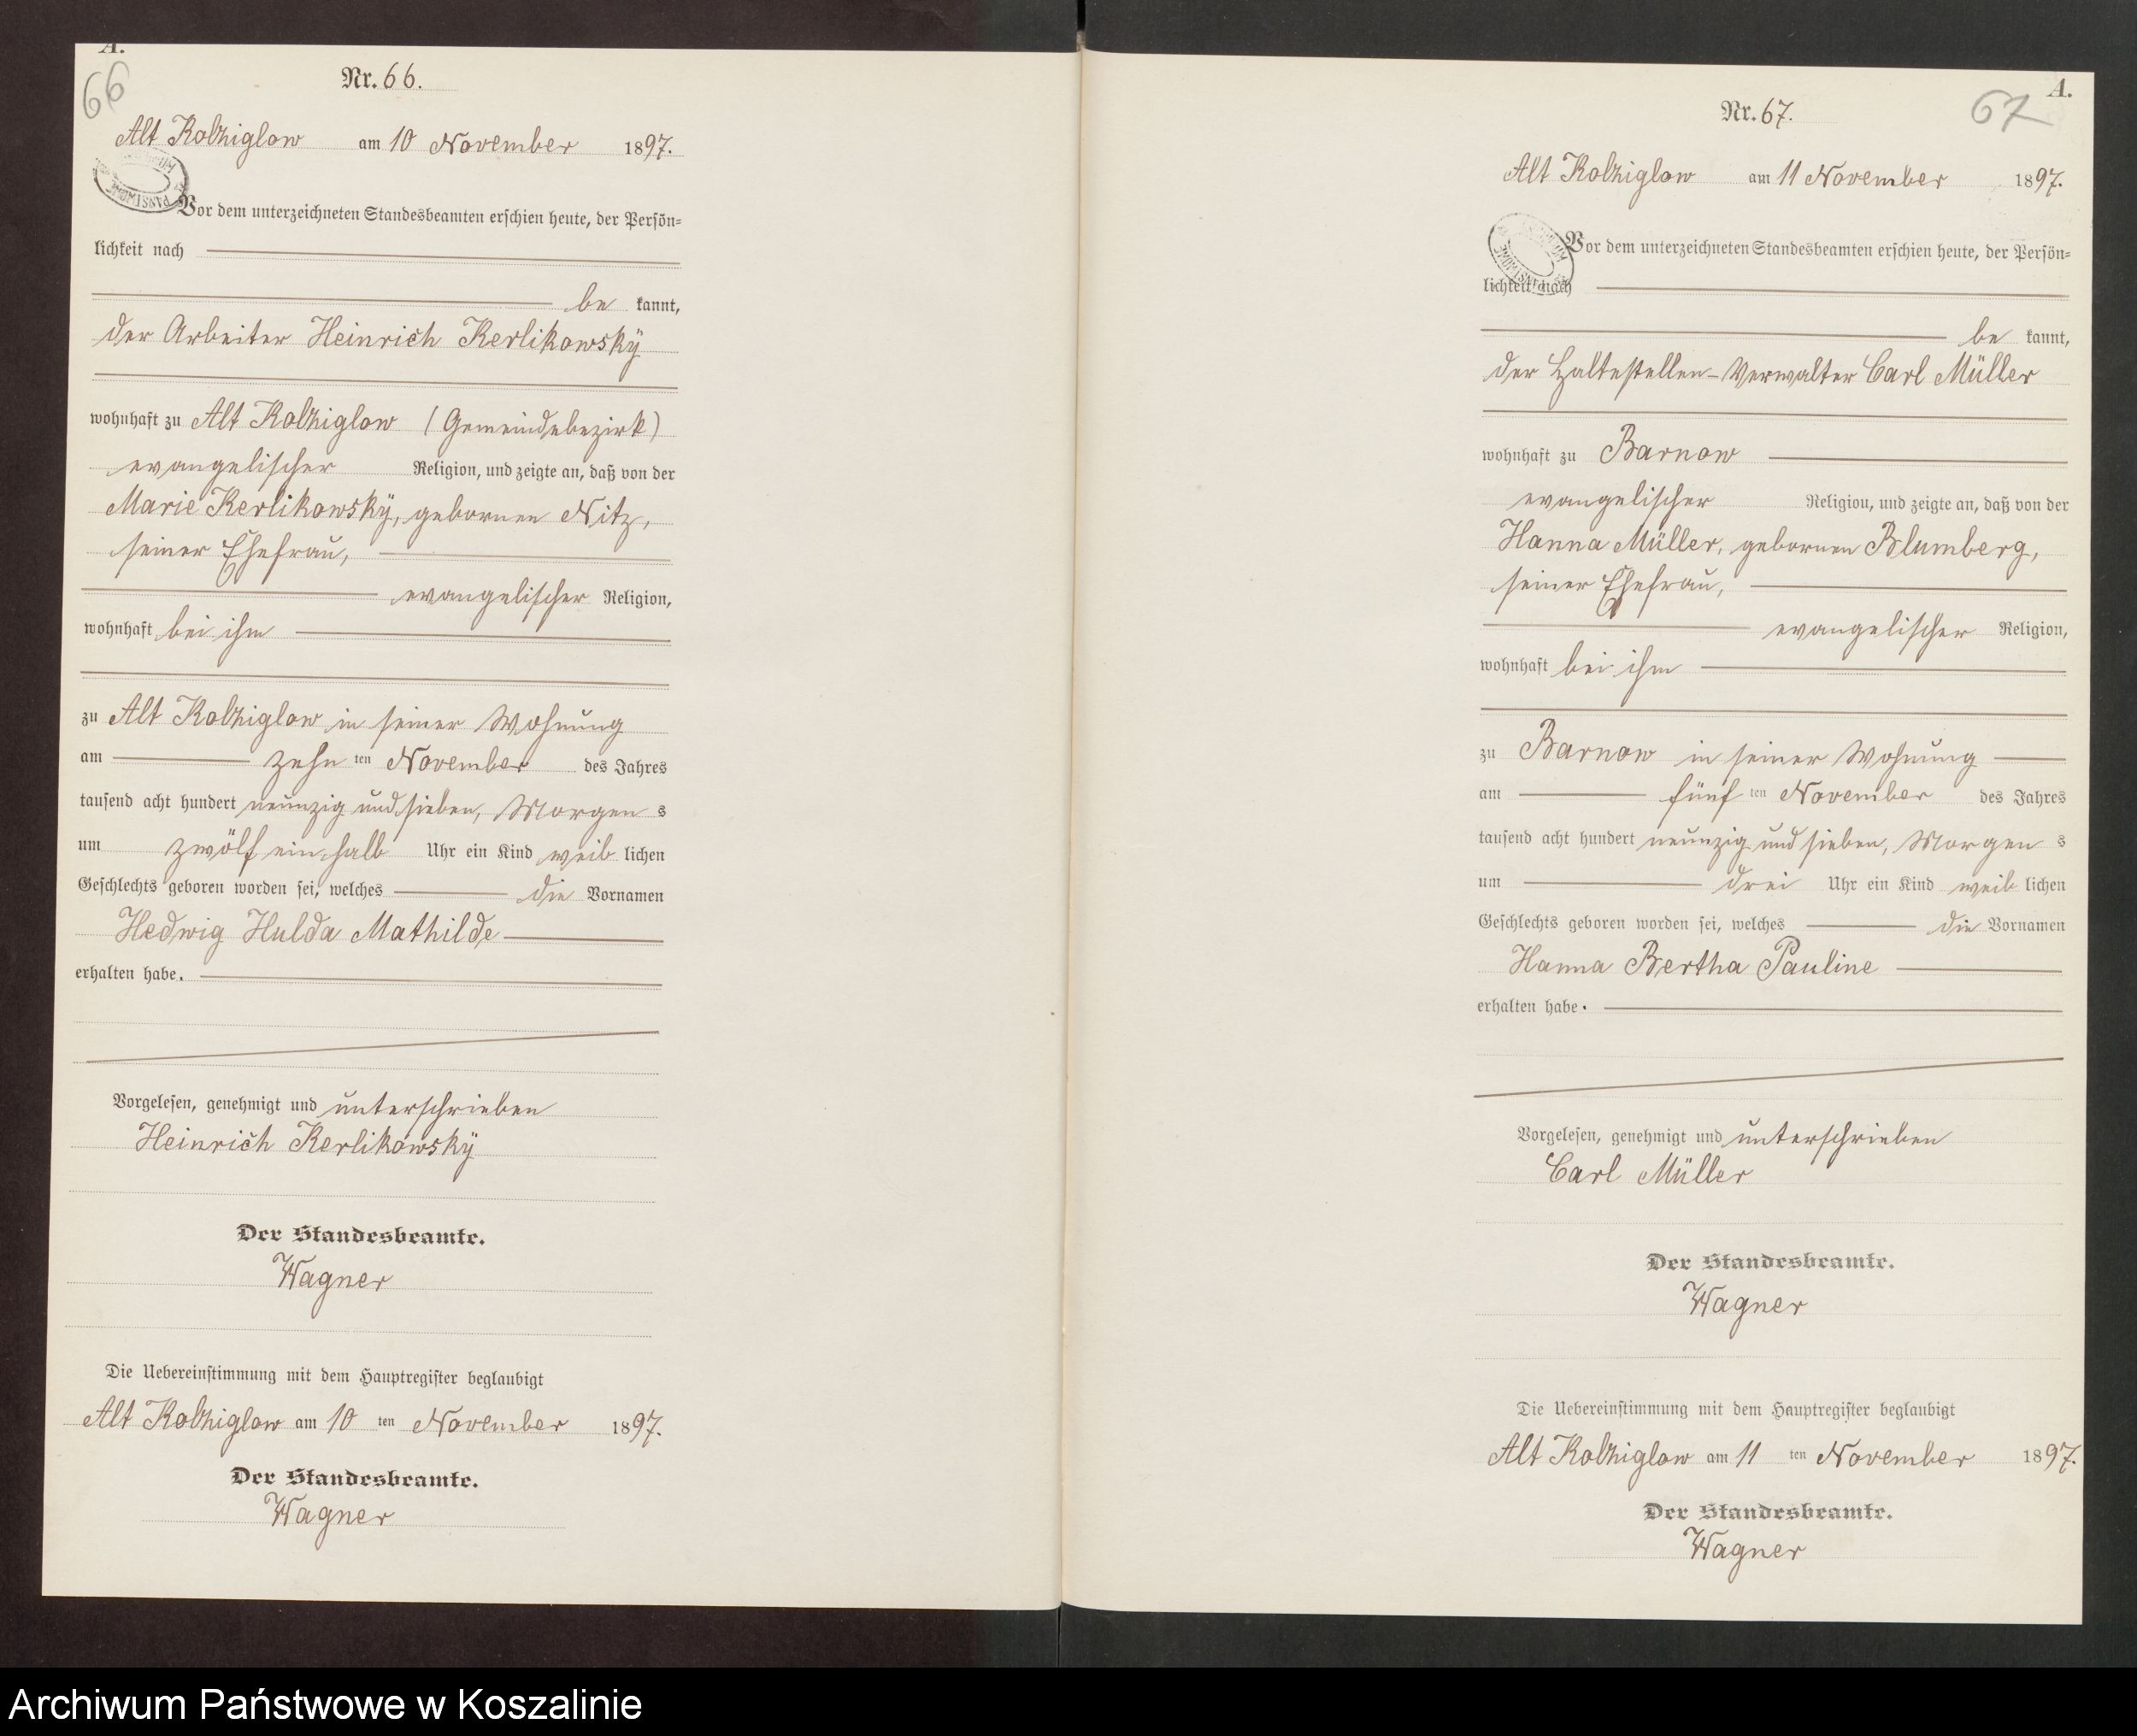 A.
66
Nr. 66.
Alt Kolziglow am 10 November 1897.
Vor dem unterzeichneten Standesbeamten erschien heute, der Persön=
lichkeit nach
be kannt,
der Arbeiter Heinrich Kerlikowsky
wohnhaft zu Alt Kolziglow (Gemeindebezirk)
evangelischer Religion, und zeigte an, daß von der
Marie Kerlikowsky, gebornen Nitz,
seiner Ehefrau,
evangelischer Religion,
wohnhaft bei ihm
zu Alt Kolziglow in seiner Wohnung
am zehn ten November des Jahres
tausend acht hundert neunzig und sieben, Morgen s
um zwölf einhalb Uhr ein Kind weib lichen
Geschlechts geboren worden sei, welches die Vornamen
Hedwig Hulda Mathilde
erhalten habe.
Vorgelesen, genehmigt und unterschrieben
Heinrich Kerlikowsky
Der Standesbeamte.
Wagner
Die Uebereinstimmung mit dem Hauptregister beglaubigt
Alt Kolziglow am 10 ten November 1897.
Der Standesbeamte.
Wagner
A.
67
Nr. 67.
Alt Kolziglow am 11 November 1897.
Vor dem unterzeichneten Standesbeamten erschien heute, der Persön=
lichkeit nach
be kannt,
der Haltestellen-Verwalter Carl Müller
wohnhaft zu Barnow
evangelischer Religion, und zeigte an, daß von der
Hanna Müller, gebornen Blumberg,
seiner Ehefrau,
evangelischer Religion,
wohnhaft bei ihm
zu Barnow in seiner Wohnung
am fünf ten November des Jahres
tausend acht hundert neunzig und sieben, Morgen s
um drei Uhr ein Kind weib lichen
Geschlechts geboren worden sei, welches die Vornamen
Hanna Bertha Pauline
erhalten habe.
Vorgelesen, genehmigt und unterschrieben
Carl Müller
Der Standesbeamte.
Wagner
Die Uebereinstimmung mit dem Hauptregister beglaubigt
Alt Kolziglow am 11 ten November 1897.
Der Standesbeamte.
Wagner
Archiwum Państwowe w Koszalinie